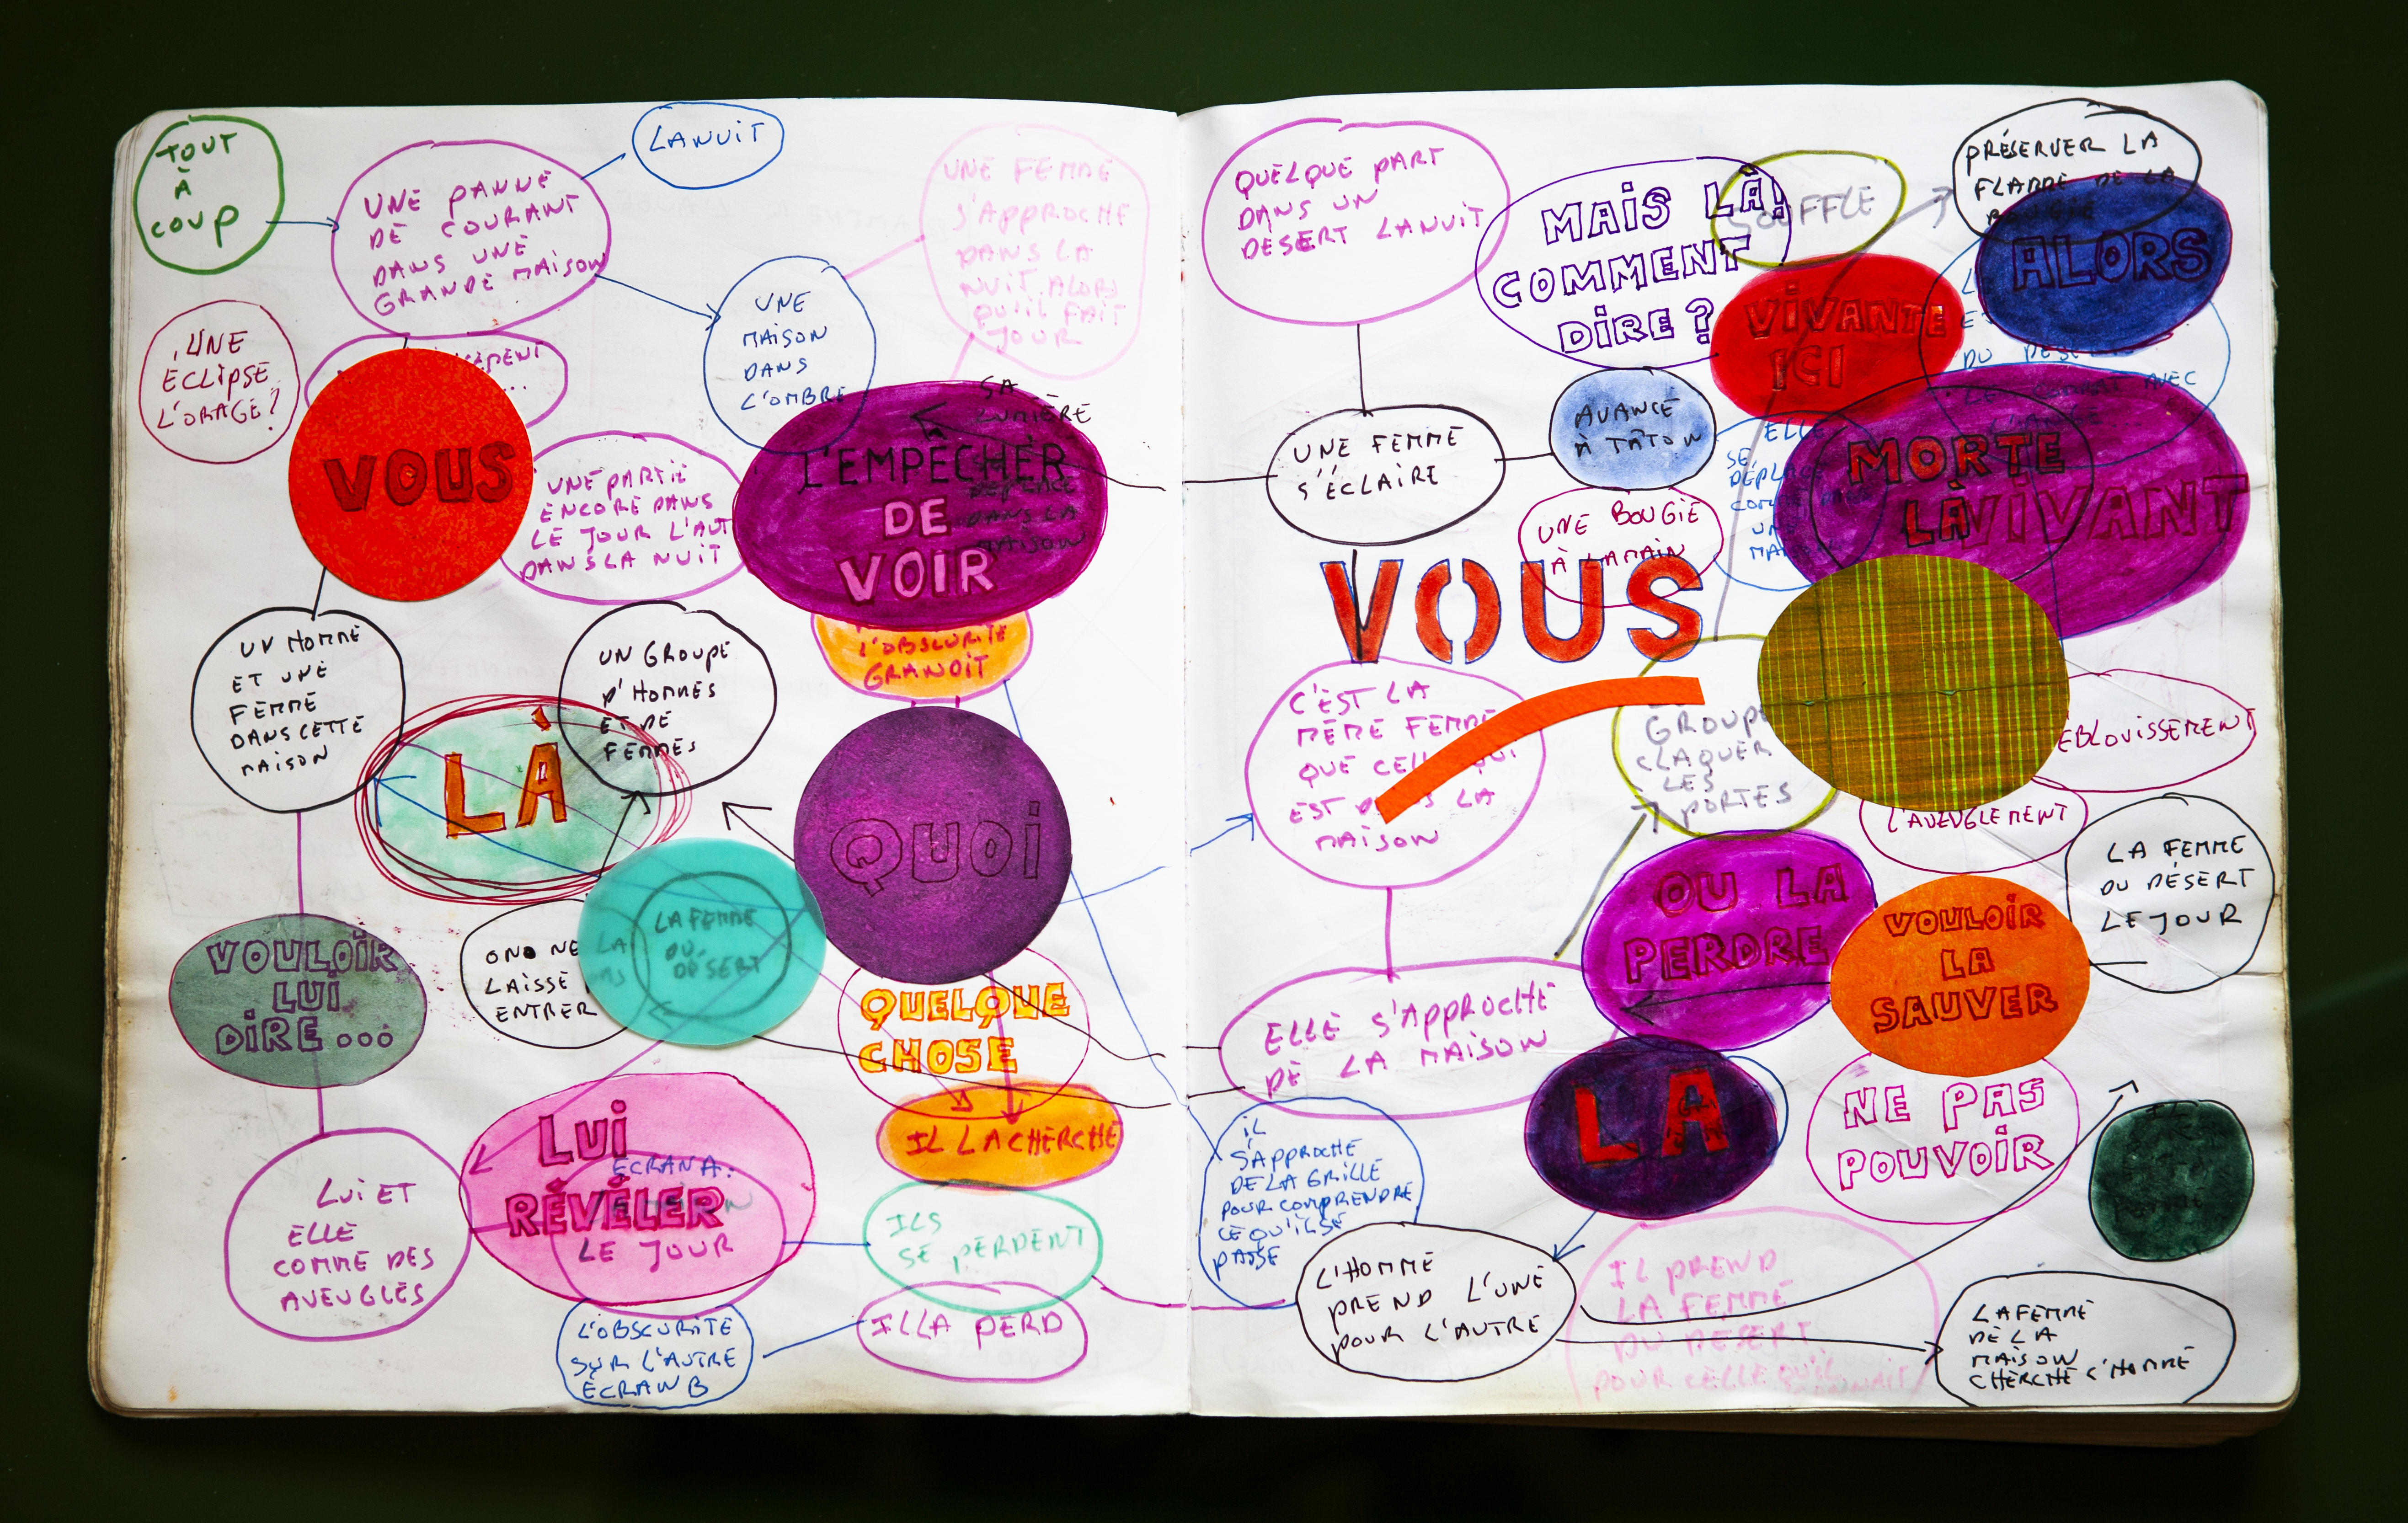 TOUT
À
COUP
UNE PANNE
DE COURANT
DANS UNE
GRANDE MAISON
LA NUIT
UNE FEMME
S'APPROCHE
DANS LA
NUIT ALORS
QU'IL FAIT
JOUR
UNE
ÉCLIPSE
L'ORAGE?
VOUS
UNE
MAISON
DANS
L'OMBRE
UNE PARTIE
ENCORE DANS
LE JOUR L'AUT
DANS LA NUIT
SA
LUMIÈRE
L'EMPÊCHER
DE
VOIR
DANS LA
MAISON
L'OBSCURITÉ
GRANDIT
UN HOMME
ET UNE
FEMME
DANS CETTE
MAISON
UN GROUPE
D'HOMMES
ET DE
FEMMES
LÀ
QUOI
VOULOIR
LUI
DIRE...
ON NE
LAISSE
ENTRER
LA FEMME
DU
DÉSERT
QUELQUE
CHOSE
IL LA CHERCHE
LUI ET
ELLE
COMME DES
AVEUGLES
LUI
ÉCRAN A:
RÉVÉLER
LE JOUR
ILS
SE PERDENT
IL LA PERD
L'OBSCURITÉ
SUR L'AUTRE
ÉCRAN B
QUELQUE PART
DANS UN
DESERT LA NUIT
MAIS LÀ!
COMMENT
DIRE?
SOUFFLE
PRÉSERVER LA
FLAMME DE LA
BOUGIE
ALORS
VIVANTE
ICI
UNE FEMME
S'ÉCLAIRE
AVANCE
À TÂTON
UNE BOUGIE
À LA MAIN
ELLE
SE
MORTE
LÀ
VIVANT
VOUS
C'EST LA
MÊME FEMME
QUE CELLE QUI
EST DANS LA
MAISON
GROUPE
CLAQUER
LES
PORTES
ÉBLOUISSEMENT
L'AVEUGLEMENT
LA FEMME
DU DÉSERT
LE JOUR
OU LA
PERDRE
VOULOIR
LA
SAUVER
ELLE S'APPROCHE
DE LA MAISON
LA
NE PAS
POUVOIR
IL
S'APPROCHE
DE LA GRILLE
POUR COMPRENDRE
CE QU'IL SE
PASSE
L'HOMME
PREND L'UNE
POUR L'AUTRE
IL PREND
LA FEMME
DU DESERT
POUR CELLE QU'IL
LA FEMME
DE LA
MAISON
CHERCHE L'HOMME